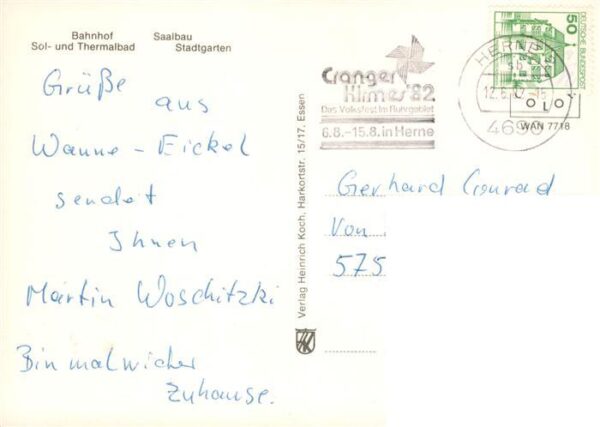 Bahnhof Saalbau
Sol- und Thermalbad Stadtgarten
Grüße
aus
Wanne-Eickel
sendet
Ihnen
Martin Woschitzki
Bin mal wieder
Zuhause.
Verlag Heinrich Koch, Harkortstr. 15/17, Essen
Cranger
Kirmes '82
Das Volksfest im Ruhrgebiet
6.8.–15.8. in Herne
HERNE
4690
50
DEUTSCHE BUNDESPOST
OLO
WAN 7718
Gerhard Conrad
Von
575